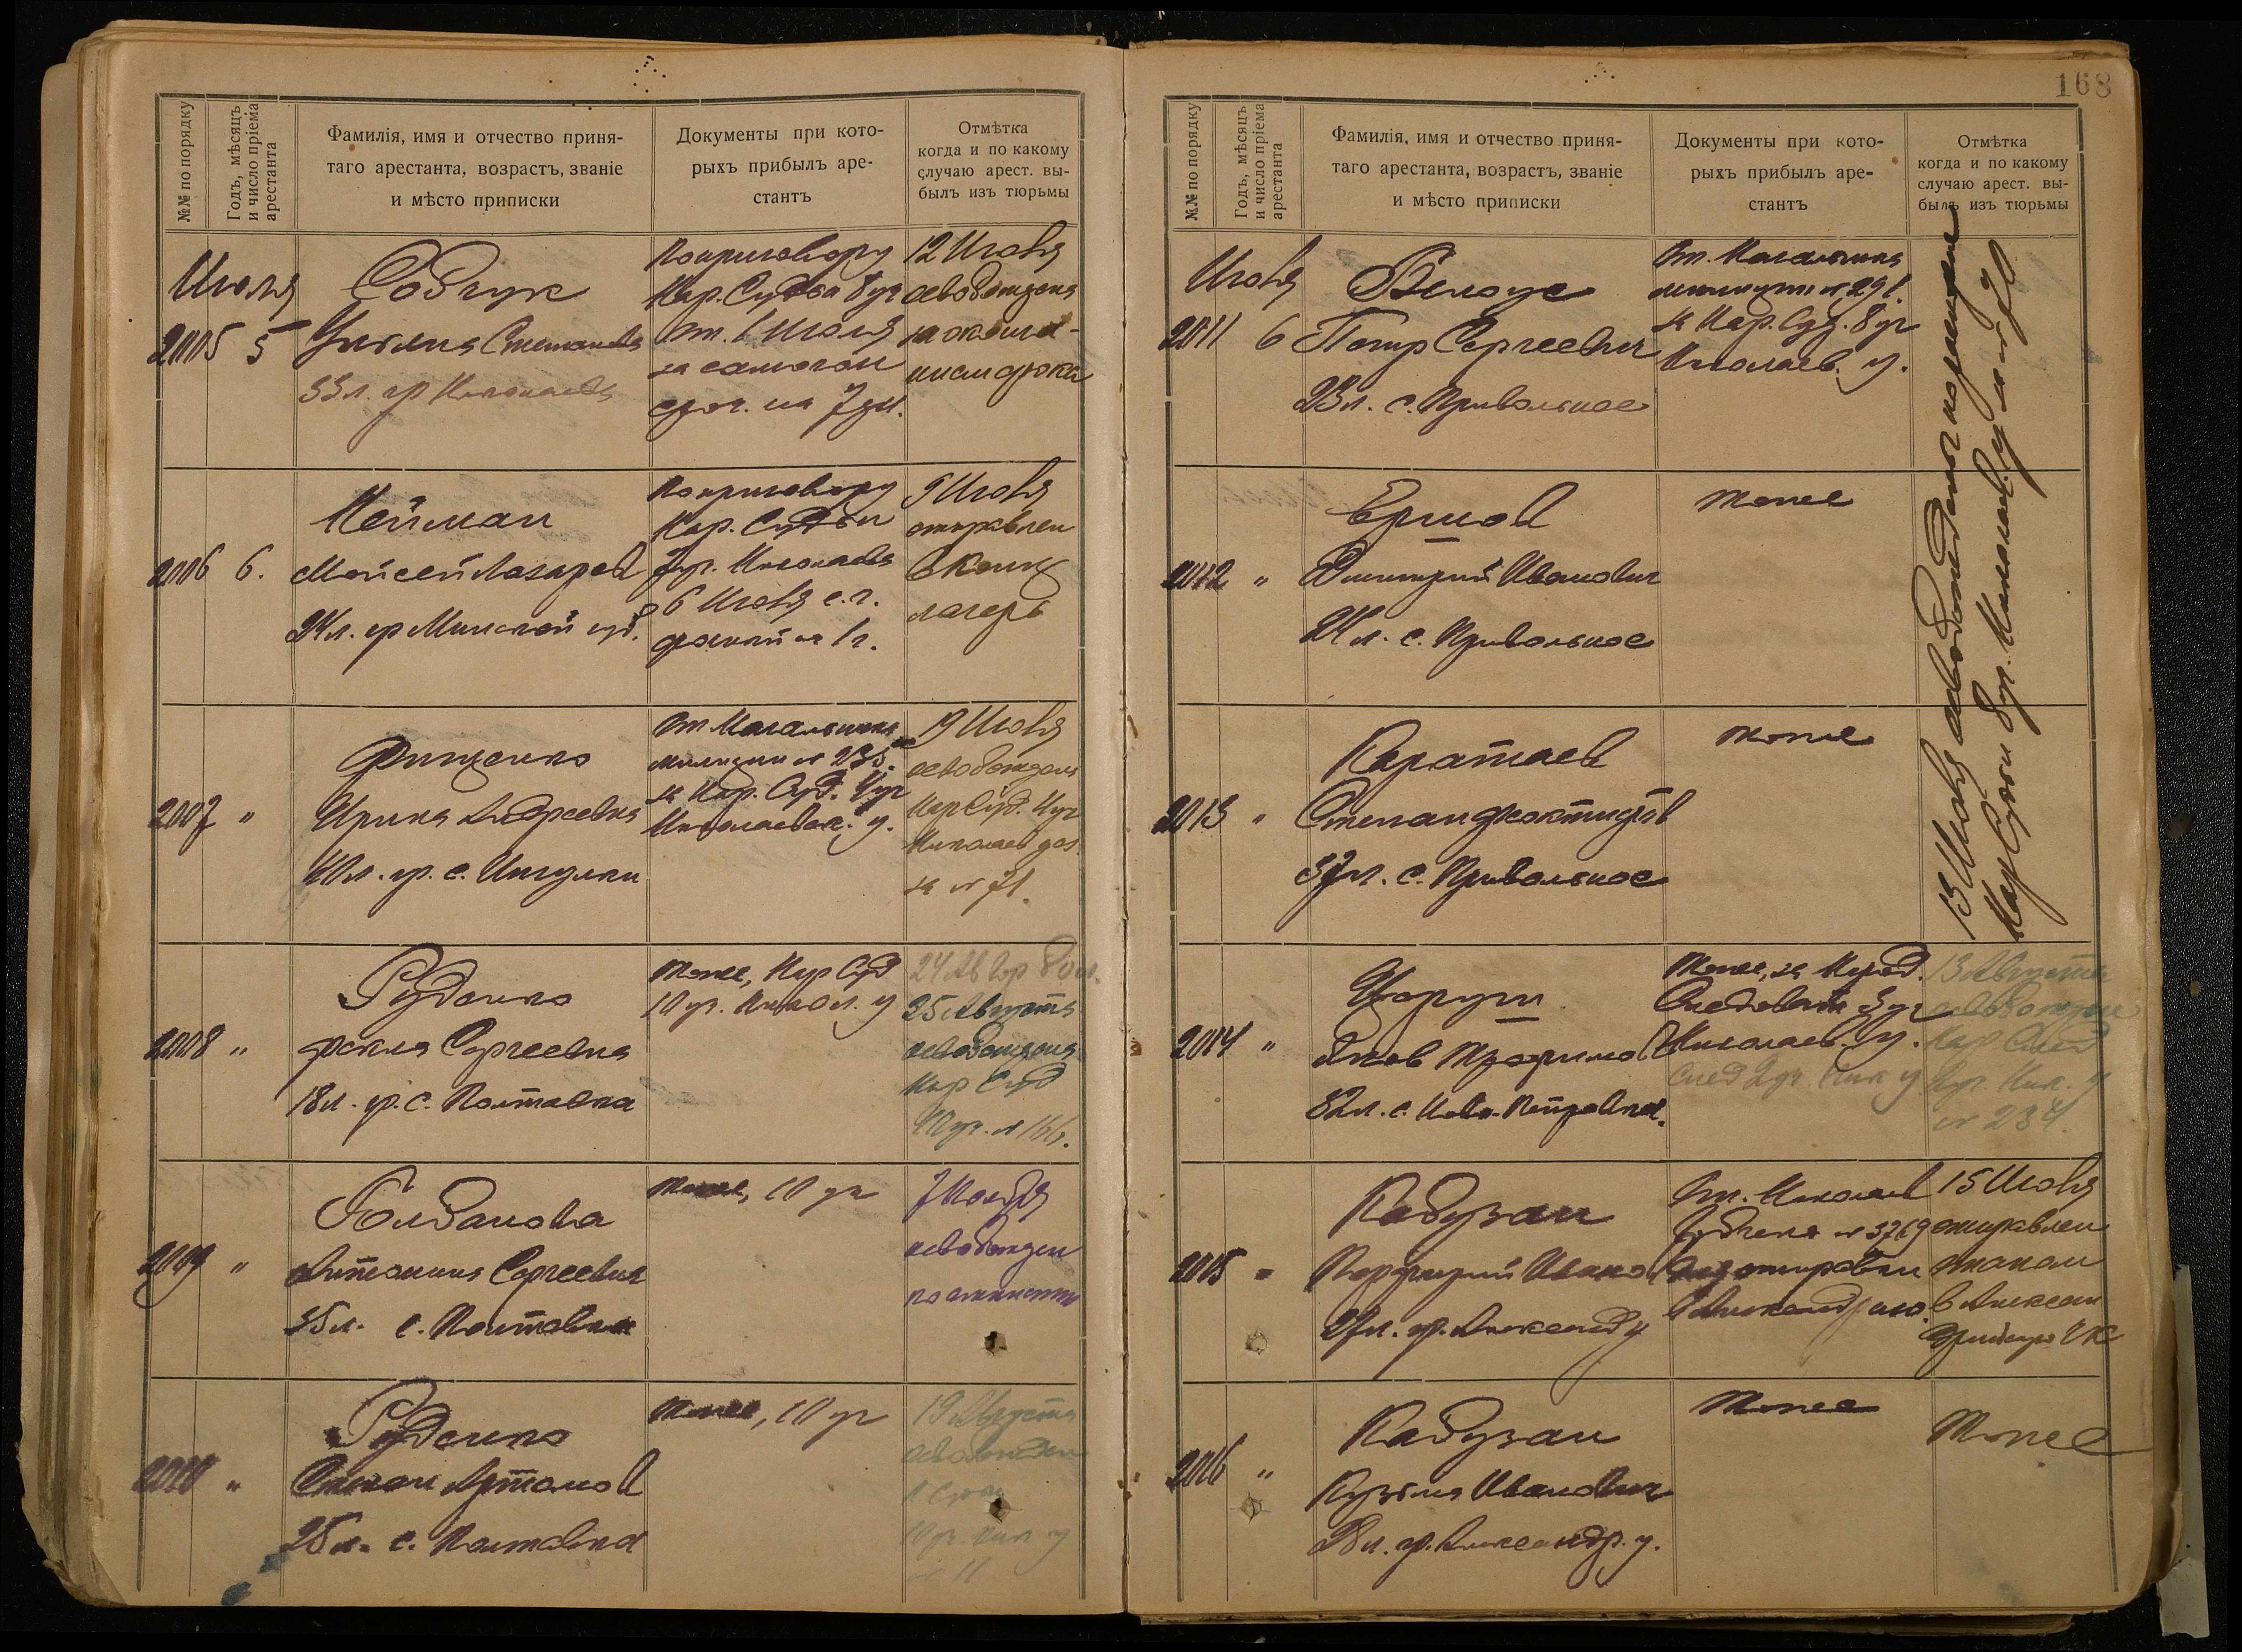 №№ по порядку
Годъ, мѣсяцъ
и число пріема
арестанта
Фамилія, имя и отчество приня-
таго арестанта, возрастъ, званіе
и мѣсто приписки
Документы при кото-
рыхъ прибылъ аре-
стантъ
Отмѣтка
когда и по какому
случаю арест. вы-
былъ изъ тюрьмы
Июля
2005 5
Собчук
Ульяна Степановна
33 л. гр Николаева
По приговору
Нар. Судьи 8 уч
от. 6 Июля
за самогон
сроч. на 7 дн.
12 Июля
освобождена
за оконча-
нием срока
2006 6.
Нейман
Мойсей Лазарев
24 л. гр Минской губ.
По приговору
Нар. Судьи
7 уч. Николаева
6 Июля с. г.
на 1 г.
9 Июля
отправлен
в Конц
лагерь
2007 "
Фищенко
Ирина Андреевна
40 л. гр. с. Ингулки
От Начальника
милиции № 235.
за Нар. Суд. 4 уч
Николаевск. у.
19 Июля
освобождена
Нар Суд. 4 уч
Николаев
за № 71.
2008 "
Руденко
Фекла Сергеевна
18 л. гр. с. Полтавка
Тоже, Нар Суд
10 уч. Никол. у
25 Августа
освобождена
Нар Суд
10 уч. № 166.
2009 "
Болданова
Антонина Сергеевна
35 л. с. Полтавка
Тоже, 10 уч
7 Ноября
освобожден
по амнистии
2010 "
Руденко
Степан Артамов
25 л. с. Полтавка
Тоже, 10 уч
19 Августа
освобожден
10 уч. Ник у
№ 11
168
№№ по порядку
Годъ, мѣсяцъ
и число пріема
арестанта
Фамилія, имя и отчество приня-
таго арестанта, возрастъ, званіе
и мѣсто приписки
Документы при кото-
рыхъ прибылъ аре-
стантъ
Отмѣтка
когда и по какому
случаю арест. вы-
былъ изъ тюрьмы
Июля
2011 6
Белоус
Петр Сергеевич
23 л. с. Привольное
От. Начальника
милиции № 291.
за Нар. Суд. 8 уч
Николаев. у.
13 Июля освобождены
Нар Судьи 8 уч. Николаев. у за № 70
2012 "
Ершов
Димитрий Иванович
24 л. с. Привольное
Тоже
2013 "
Каратаев
Степан Феоктистов
37 л. с. Привольное
Тоже
2014 "
Яков Трофимов
52 л. с. Ново-Петровка.
Тоже, за Народ.
Следоват 3 уч
Николаев. у.
След 2 уч. Ник у
13 Августа
освобожден
Нар След
2 уч. Ник. у
№ 234.
2015 "
Кабузан
Порфирий Иванов
27 л. гр. Александ у
От. Николаев
Губчека № 3769
отправки
15 Июля
отправлен
этапом
в Алексан
дрийскую ЧК
2016 "
Кабузан
Кузьма Иванович
28 л. гр. Александр. у.
Тоже
Тоже